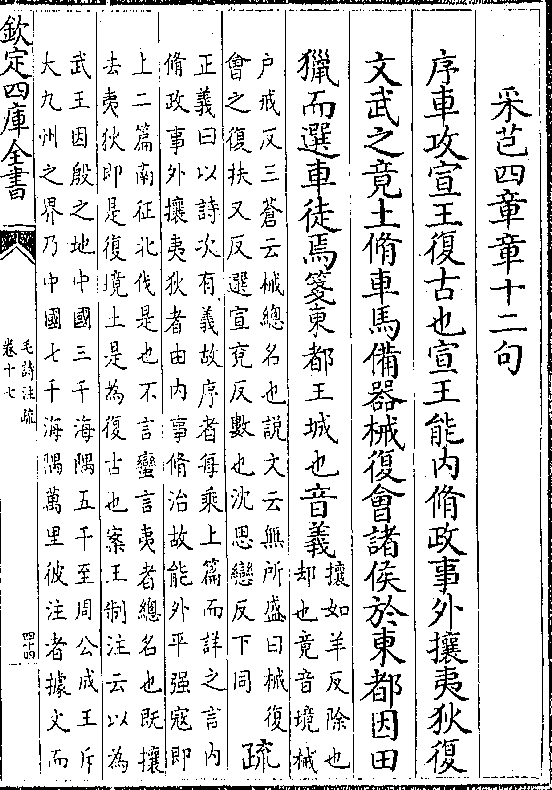 采芑四章章十二句
序車攻宣王復古也宣王能内脩政事外攘夷狄復
文武之竟土脩車馬備器械復會諸侯於東都因田
獵而選車徒焉箋東都王城也音義攘如羊反除也
却也竟音境械
户戒反三蒼云械總名也說文云無所盛曰械復
會之復扶又反選宣兗反數也沈思戀反下同
疏
正義曰以詩次有義故序者每乘上篇而詳之言内
脩政事外攘夷狄者由内事脩治故能外平强寇即
上二篇南征北伐是也不言蠻言夷者總名也既攘
去夷狄即是復境土是為復古也案王制注云以為
武王因殷之地中國三千海隅五千至周公成王斥
大九州之界乃中國七千海隅萬里彼注者據文而
欽定四庫全書
毛詩注疏
卷十七
四十四